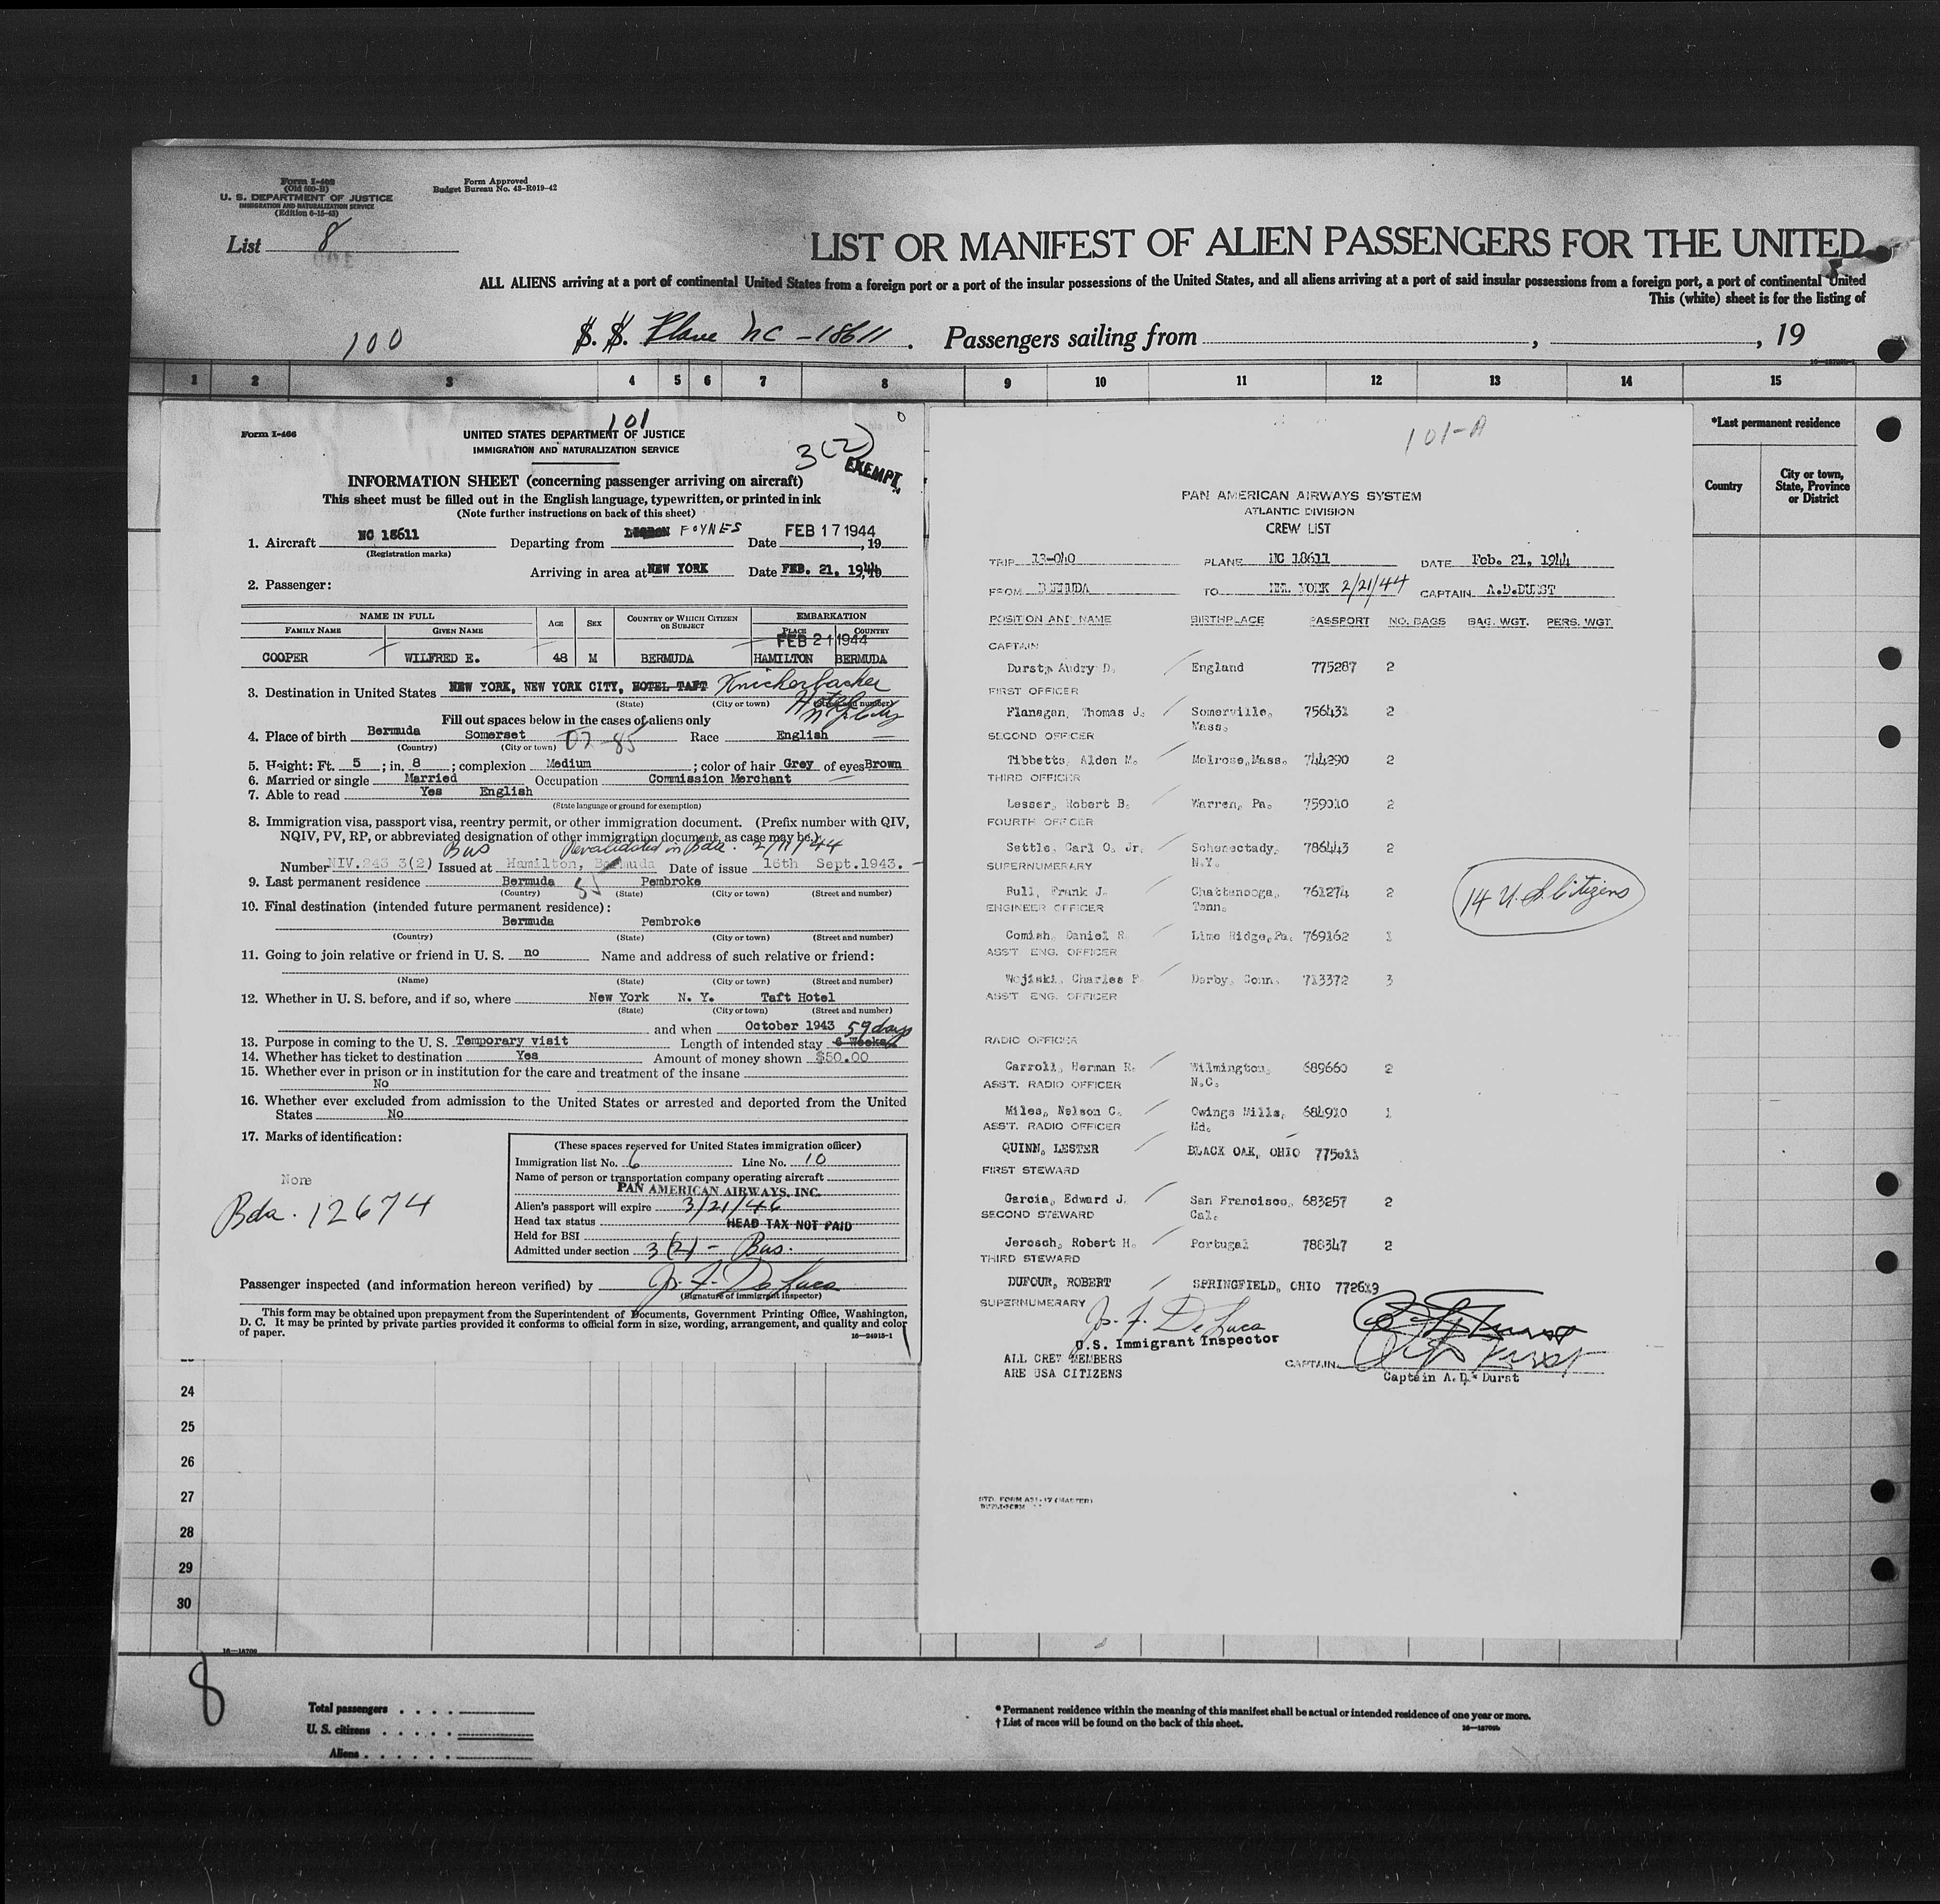 Form I-408
(Old 500-B)
U. S. DEPARTMENT OF JUSTICE
IMMIGRATION AND NATURALIZATION SERVICE
(Edition 6-15-43)
Form Approved
Budget Bureau No. 43-R019-42
List 8
LIST OR MANIFEST OF ALIEN PASSENGERS FOR THE UNITED
ALL ALIENS arriving at a port of continental United States from a foreign port or a port of the insular possessions of the United States, and all aliens arriving at a port of said insular possessions from a foreign port, a port of continental United
This (white) sheet is for the listing of
100
S. S. Plane NC-18611. Passengers sailing from , , 19
1 2 3 4 5 6 7 8 9 10 11 12 13 14 15
*Last permanent residence
Country
City or town,
State, Province
or District
101
Form I-466
UNITED STATES DEPARTMENT OF JUSTICE
IMMIGRATION AND NATURALIZATION SERVICE
3(2)
EXEMPT
INFORMATION SHEET (concerning passenger arriving on aircraft)
This sheet must be filled out in the English language, typewritten, or printed in ink
(Note further instructions on back of this sheet)
1. Aircraft NC 18611 Departing from FOYNES Date FEB 17 1944, 19
(Registration marks)
Arriving in area at NEW YORK Date FEB. 21, 1944
2. Passenger:
NAME IN FULL AGE SEX COUNTRY OF WHICH CITIZEN OR SUBJECT EMBARKATION
FAMILY NAME GIVEN NAME PLACE COUNTRY
FEB 21 1944
COOPER WILFRED E. 48 M BERMUDA HAMILTON BERMUDA
3. Destination in United States NEW YORK, NEW YORK CITY, HOTEL TAFT Knickerbocker
Hotel
(State) (City or town) (Street and number)
N. Y. City
Fill out spaces below in the cases of aliens only
4. Place of birth Bermuda Somerset 02-85 Race English
(Country) (City or town)
5. Height: Ft. 5; in. 8; complexion Medium; color of hair Grey of eyes Brown
6. Married or single Married Occupation Commission Merchant
7. Able to read Yes English
(State language or ground for exemption)
8. Immigration visa, passport visa, reentry permit, or other immigration document. (Prefix number with QIV,
NQIV, PV, RP, or abbreviated designation of other immigration document, as case may be.)
Bus Revalidated in Bda.
Number NIV.243 3(2) Issued at Hamilton, Bermuda Date of issue 16th Sept.1943.
9. Last permanent residence Bermuda 85 Pembroke
(Country) (State) (City or town) (Street and number)
10. Final destination (intended future permanent residence):
Bermuda Pembroke
(Country) (State) (City or town) (Street and number)
11. Going to join relative or friend in U. S. no Name and address of such relative or friend:
(Name) (State) (City or town) (Street and number)
12. Whether in U. S. before, and if so, where New York N. Y. Taft Hotel
(State) (City or town) (Street and number)
and when October 1943 59 days
13. Purpose in coming to the U. S. Temporary visit Length of intended stay 6 Weeks
14. Whether has ticket to destination Yes Amount of money shown $50.00
15. Whether ever in prison or in institution for the care and treatment of the insane
No
16. Whether ever excluded from admission to the United States or arrested and deported from the United
States No
17. Marks of identification:
None
Bda. 12674
(These spaces reserved for United States immigration officer)
Immigration list No. 6 Line No. 10
Name of person or transportation company operating aircraft
PAN AMERICAN AIRWAYS, INC.
Alien's passport will expire 3/21/46
Head tax status HEAD TAX NOT PAID
Held for BSI
Admitted under section 3(2) - Bus.
Passenger inspected (and information hereon verified) by Js. F. De Luca
(Signature of immigrant inspector)
This form may be obtained upon prepayment from the Superintendent of Documents, Government Printing Office, Washington,
D. C. It may be printed by private parties provided it conforms to official form in size, wording, arrangement, and quality and color
of paper.
16—24915-1
101-A
PAN AMERICAN AIRWAYS SYSTEM
ATLANTIC DIVISION
CREW LIST
TRIP 13-040 PLANE NC 18611 DATE Feb. 21, 1944
FROM BERMUDA TO NEW YORK 2/21/44 CAPTAIN A.D.DURST
POSITION AND NAME BIRTHPLACE PASSPORT NO. BAGS BAG. WGT. PERS. WGT.
CAPTAIN
Durst, Audry D. England 775287 2
FIRST OFFICER
Flanagan, Thomas J. Somerville, Mass. 756431 2
SECOND OFFICER
Tibbetts, Alden M. Melrose,Mass. 744290 2
THIRD OFFICER
Lesser, Robert B. Warren, Pa. 759010 2
FOURTH OFFICER
Settle, Carl O. Jr. Schenectady, N.Y. 786443 2
SUPERNUMERARY
Bull, Frank J. Chattanooga, Tenn. 761274 2
ENGINEER OFFICER
Comish, Daniel S. Lime Ridge,Pa. 769162 1
ASS'T ENG. OFFICER
Wojiski, Charles P. Derby, Conn. 713372 3
ASS'T ENG. OFFICER
RADIO OFFICER
Carroll, Herman R. Wilmington, N.C. 689660 2
ASS'T. RADIO OFFICER
Miles, Nelson C. Owings Mills, Md. 684910 1
ASS'T. RADIO OFFICER
QUINN, LESTER BLACK OAK, OHIO 775011
FIRST STEWARD
Garcia, Edward J. San Francisco, Cal. 683257 2
SECOND STEWARD
Jerosch, Robert H. Portugal 788347 2
THIRD STEWARD
DUFOUR, ROBERT SPRINGFIELD, OHIO 772619
SUPERNUMERARY
14 U.S. Citizens
Js. F. De Luca
U.S. Immigrant Inspector
ALL CREW MEMBERS
ARE USA CITIZENS
CAPTAIN
Captain A. D. Durst
STD. FORM A21-17 (MASTER)
24
25
26
27
28
29
30
8
Total passengers . . . .
U. S. citizens . . . . .
Aliens . . . . . .
* Permanent residence within the meaning of this manifest shall be actual or intended residence of one year or more.
† List of races will be found on the back of this sheet.